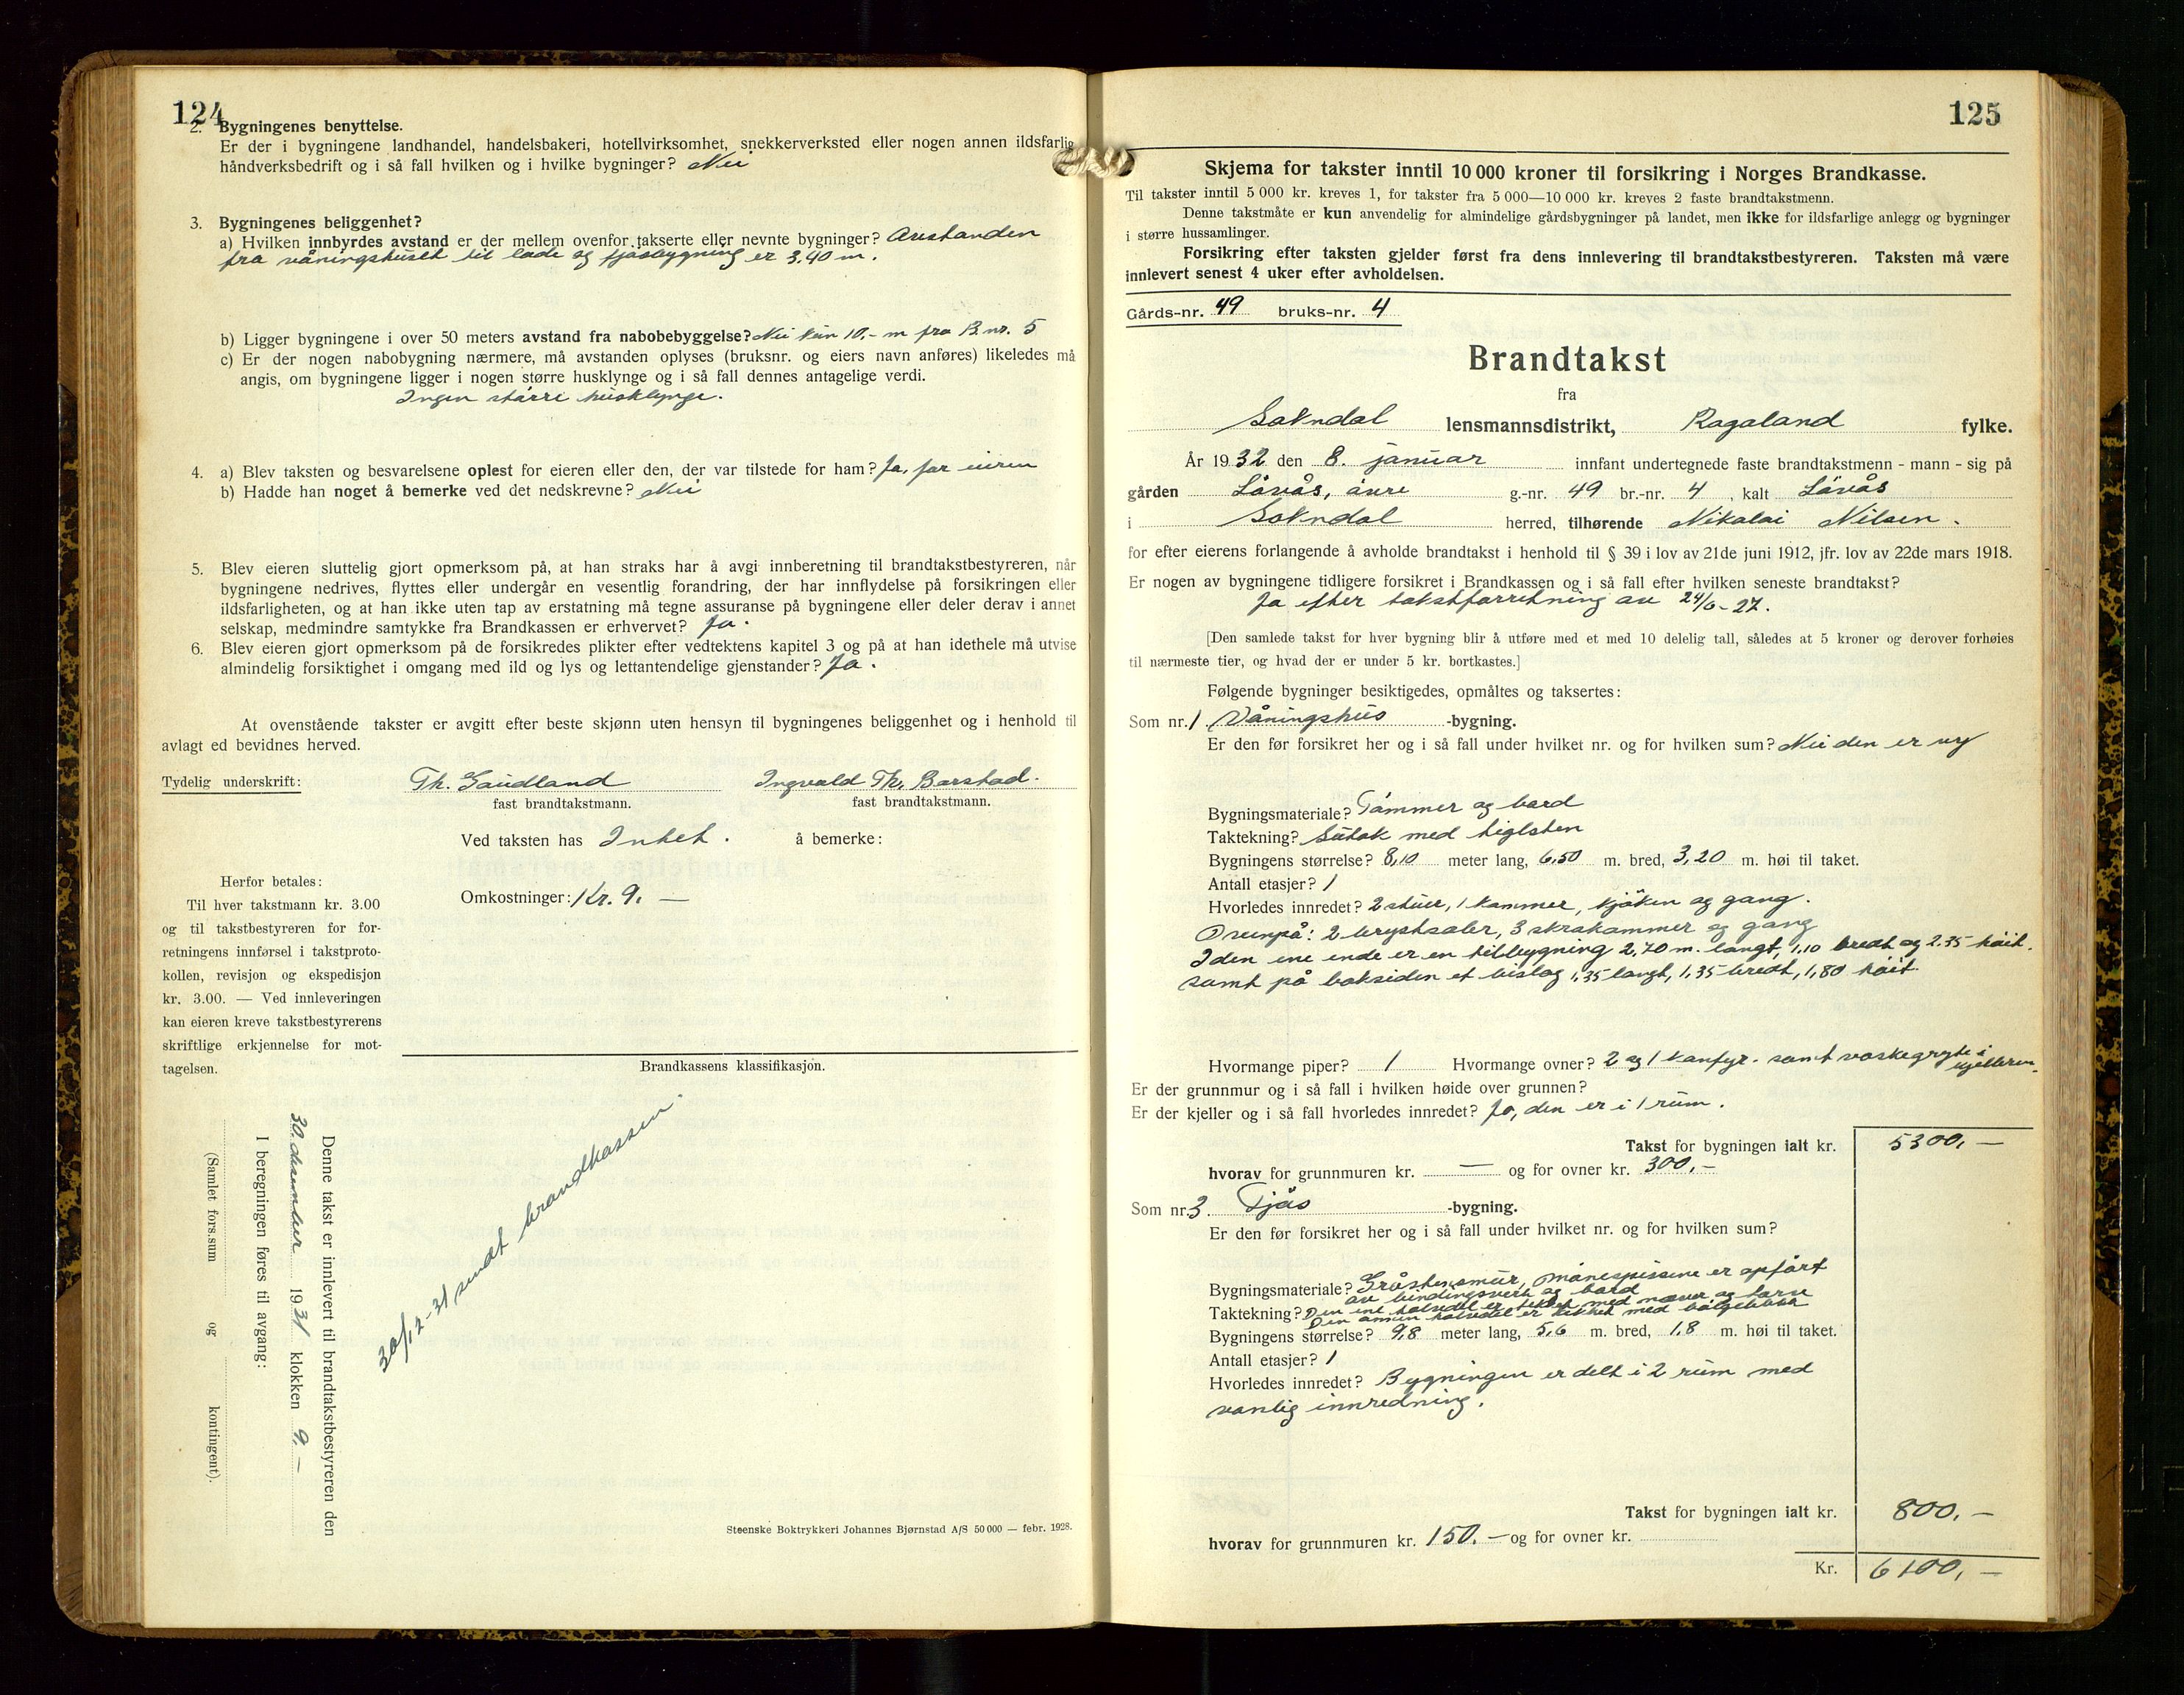 124
2. Bygningenes benyttelse.
Er der i bygningene landhandel, handelsbakeri, hotellvirksomhet, snekkerverksted eller nogen annen ildsfarlig
håndverksbedrift og i så fall hvilken og i hvilke bygninger? Nei
3. Bygningenes beliggenhet?
a) Hvilken innbyrdes avstand er der mellem ovenfor takserte eller nevnte bygninger? Avstanden
fra våningshuset til lade og fjøsbygning er 3,40 m.
b) Ligger bygningene i over 50 meters avstand fra nabobebyggelse? Nei kun 10,- m fra B.nr. 5
c) Er der nogen nabobygning nærmere, må avstanden oplyses (bruksnr. og eiers navn anføres) likeledes må
angis, om bygningene ligger i nogen større husklynge og i så fall dennes antagelige verdi.
Ingen større husklynge.
4. a) Blev taksten og besvarelsene oplest for eieren eller den, der var tilstede for ham? Ja, for eieren
b) Hadde han noget å bemerke ved det nedskrevne? Nei
5. Blev eieren sluttelig gjort opmerksom på, at han straks har å avgi innberetning til brandtakstbestyreren, når
bygningene nedrives, flyttes eller undergår en vesentlig forandring, der har innflydelse på forsikringen eller
ildsfarligheten, og at han ikke uten tap av erstatning må tegne assuranse på bygningene eller deler derav i annet
selskap, medmindre samtykke fra Brandkassen er erhvervet? Ja.
6. Blev eieren gjort opmerksom på de forsikredes plikter efter vedtektens kapitel 3 og på at han idethele må utvise
almindelig forsiktighet i omgang med ild og lys og lettantendelige gjenstander? Ja.
At ovenstående takster er avgitt efter beste skjønn uten hensyn til bygningenes beliggenhet og i henhold til
avlagt ed bevidnes herved.
Tydelig underskrift: Th. Gaudland Ingvald Th. Barstad.
fast brandtakstmann. fast brandtakstmann.
Ved taksten has Intet. å bemerke:
Omkostninger: Kr. 9. —
Herfor betales:
Til hver takstmann kr. 3.00
og til takstbestyreren for for-
retningens innførsel i takstproto-
kollen, revisjon og ekspedisjon
kr. 3.00. — Ved innleveringen
kan eieren kreve takstbestyrerens
skriftlige erkjennelse for mot-
tagelsen.
Brandkassens klassifikasjon.
30/12-31 sendt brandkassen.
Denne takst er innlevert til brandtakstbestyreren den
30. desember 1931 klokken 9. —
I beregningen føres til avgang:
(Samlet fors.sum og kontingent).
Steenske Boktrykkeri Johannes Bjørnstad A/S 50 000 — febr. 1928.
125
Skjema for takster inntil 10 000 kroner til forsikring i Norges Brandkasse.
Til takster inntil 5 000 kr. kreves 1, for takster fra 5 000—10 000 kr. kreves 2 faste brandtakstmenn.
Denne takstmåte er kun anvendelig for almindelige gårdsbygninger på landet, men ikke for ildsfarlige anlegg og bygninger
i større hussamlinger.
Forsikring efter taksten gjelder først fra dens innlevering til brandtakstbestyreren. Taksten må være
innlevert senest 4 uker efter avholdelsen.
Gårds-nr. 49 bruks-nr. 4
Brandtakst
fra
Sokndal lensmannsdistrikt, Rogaland fylke.
År 1932 den 8. januar innfant undertegnede faste brandtakstmenn - mann - sig på
gården Løvås, øvre g.-nr. 49 br.-nr. 4, kalt Løvås
i Sokndal herred, tilhørende Nikolai Nilsen.
for efter eierens forlangende å avholde brandtakst i henhold til § 39 i lov av 21de juni 1912, jfr. lov av 22de mars 1918.
Er nogen av bygningene tidligere forsikret i Brandkassen og i så fall efter hvilken seneste brandtakst?
Ja efter takstforretning av 24/6-27.
[Den samlede takst for hver bygning blir å utføre med et med 10 delelig tall, således at 5 kroner og derover forhøies
til nærmeste tier, og hvad der er under 5 kr. bortkastes.]
Følgende bygninger besiktigedes, opmåltes og taksertes:
Som nr. 1. Våningshus -bygning.
Er den før forsikret her og i så fall under hvilket nr. og for hvilken sum? Nei den er ny
Bygningsmateriale? Tømmer og bord
Taktekning? Sutak med tiglsten
Bygningens størrelse? 8,10 meter lang, 6,50 m. bred, 3,20 m. høi til taket.
Antall etasjer? 1
Hvorledes innredet? 2 stuer, 1 kammer, kjøken og gang.
Ovenpå: 2 brystsaler, 3 skrakammer og gang
I den ene ende er en tilbygning 2,70 m. langt, 1,10 bredt og 2.35 høit.
samt på baksiden et bislag 1,35 langt, 1,35 bredt, 1,80 høit.
Hvormange piper? 1 Hvormange ovner? 2 og 1 komfyr. samt vaskegryte i
kjelleren.
Er der grunnmur og i så fall i hvilken høide over grunnen?
Er der kjeller og i så fall hvorledes innredet? Ja, den er i 1 rum.
Takst for bygningen ialt kr. 5300,—
hvorav for grunnmuren kr. — og for ovner kr. 300,—
Som nr. 3. Fjøs -bygning.
Er den før forsikret her og i så fall under hvilket nr. og for hvilken sum?
Bygningsmateriale? Gråstensmur, mønespissene er opført
av bindingsverk og bord
Taktekning? Den ene halvdel er tekket med never og torv
Den annen halvdel er tekket med bølgeblikk
Bygningens størrelse? 9,8 meter lang, 5,6 m. bred, 1,8 m. høi til taket.
Antall etasjer? 1
Hvorledes innredet? Bygningen er delt i 2 rum med
vanlig innredning.
Takst for bygningen ialt kr. 800,—
hvorav for grunnmuren kr. 150.— og for ovner kr.
Kr. 6100,—